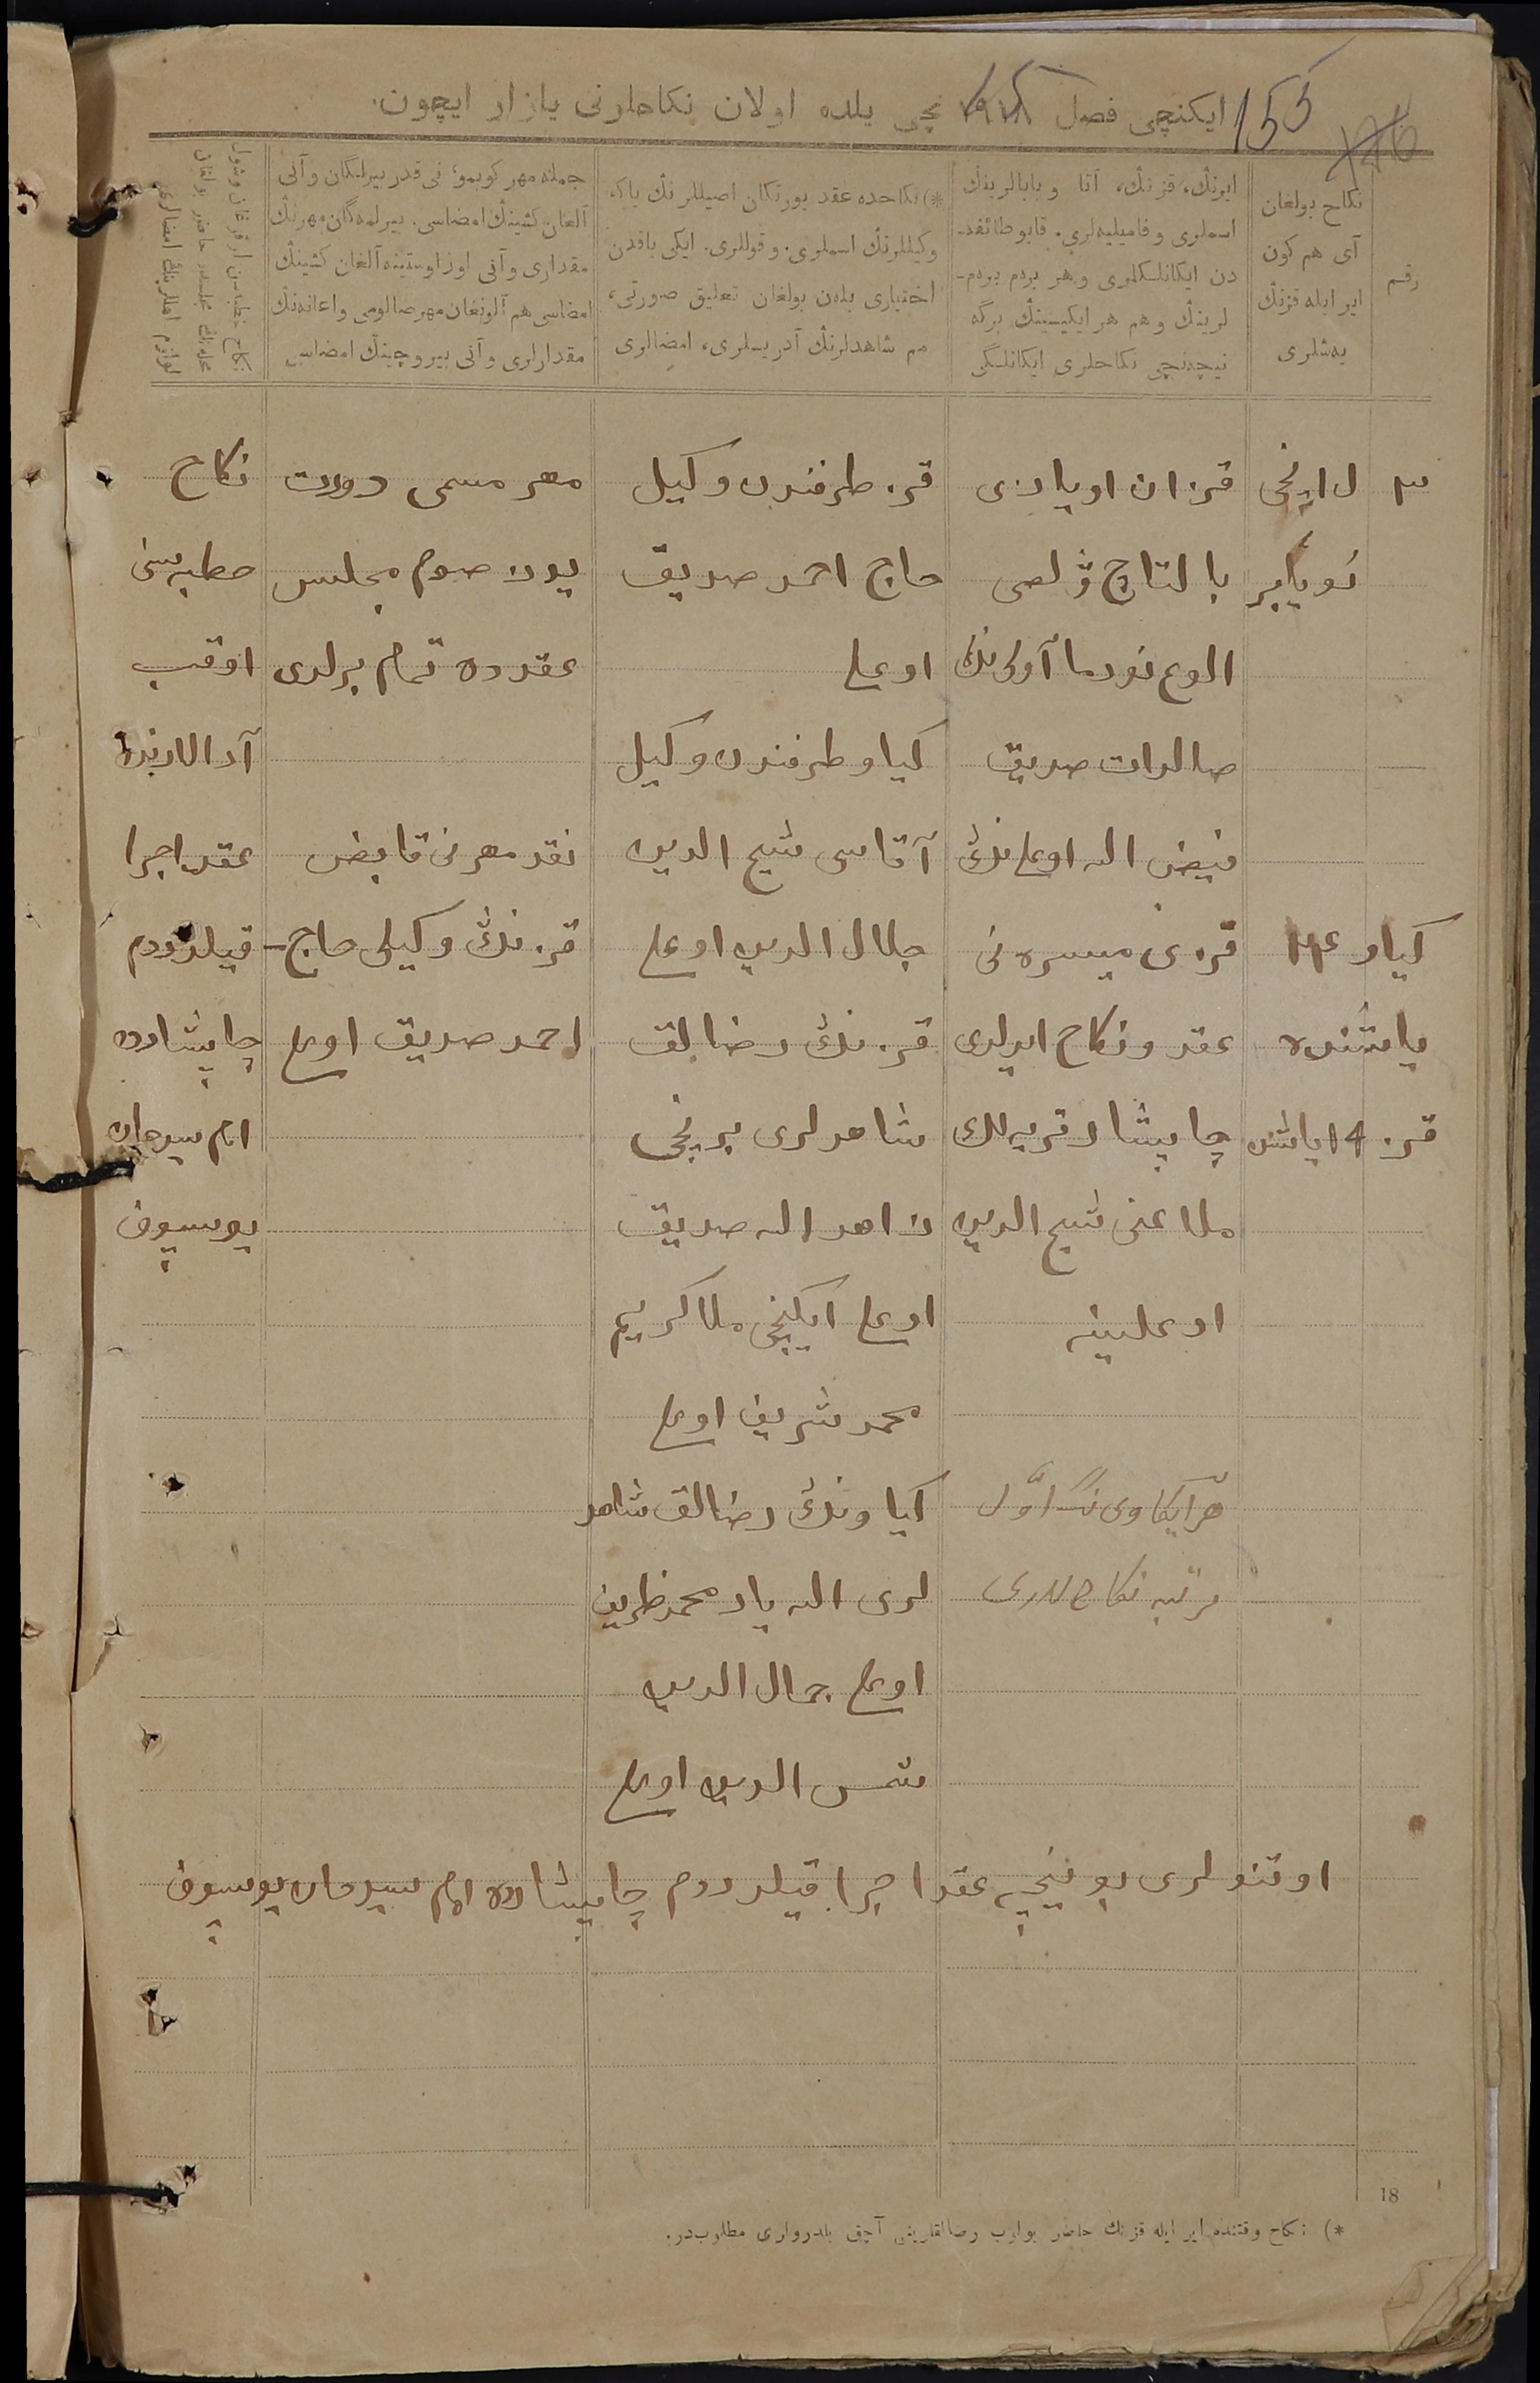 153
ایکنچی فصل ۱۹۱۸ نچی یلده اولان نکاحلرنی یازار ایچون.
رقم
نکاح بولغان
آی هم کون
ایر ایله قزنڭ
یه‌شلری
ایرنڭ، قزنڭ، آتا و بابالرینڭ
اسملری و فامیلیه‌لری. قایو طائفه‌-
دن ایکانلکلری و هر برم برم-
لرینڭ و هم هر ایکیسینڭ برگه
نیچه‌نچی نکاحلری ایکانلگی
*) نکاحده عقد یورتکان اصیللرنڭ یاکه
وکیللرنڭ اسملری. و قوللری. ایکی یاقدن
اختیاری بله‌ن بولغان تعلیق صورتی،
هم شاهدلرنڭ آدریسلری، امضالری
جمله مهر کوبمؤ، نی قدر بیرلگان و آنی
آلغان کشینڭ امضاسی. بیرلمه‌گان مهرنڭ
مقداری و آنی اوز اوستینه آلغان کشینڭ
امضاسی هم آلونغان مهر صالومی و اعانه‌نڭ
مقدارلری و آنی بیروچینڭ امضاسی
۳
نویابر
کیاو ۲۴
یاشنده
قز ۱۹ یاشنده
قزان اویازی
بالتاچ ولصی
الوغ نورما آولی‌نڭ
صالدات صدیق
فیض الله اوغلی‌نڭ
قزی میسره‌نی
عقد و نکاح ایرلدی
چاپشار قریه‌لک
ملا غنی شیخ الدین
اوغلینه
هر ایکاوی‌نڭ اول
مرتبه نکاح‌لاری
قز طرفندن وکیل
حاج احمد صدیق
اوغلی
کیاو طرفندن وکیل
آقاسی شیخ الدین
جلال الدین اوغلی
قزنڭ رضالق
شاهدلری برنچی
زاهد الله صدیق
اوغلی ایکنچی ملا کریم
محمد شریف اوغلی
کیاونڭ رضالق شاهد
لری الله یار محمد ظریف
اوغلی جمال الدین
شمس الدین اوغلی
مهر مسمی دورت
یوز صوم مجلس
عقدده تمام برلدی
نقد مهرنی قابض
قزنڭ وکیلی حاج-
احمد صدیق اوغلی
نکاح
خطبه‌سنی
اوقب
آرالارنده
عقد اجرا
قیلدردم
چاپشارده
امام سیرجان
یوسپوف
اوتنولری بوینچه عقد اجرا قیلدردم چاپشارده امام سیرجان یوسپوف
18
*) نکاح وقتنده ایر ایله قزنڭ حاضر بولوب رضالقلرینی آچق بلدرولری مطلوب‌در.